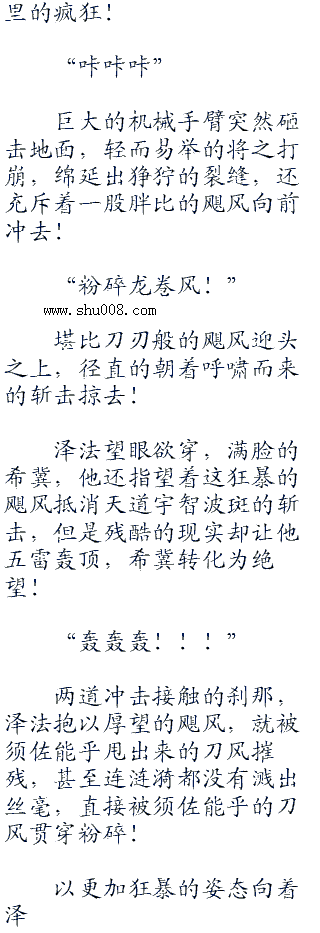 里的疯狂！
“咔咔咔”
巨大的机械手臂突然砸
击地面，轻而易举的将之打
崩，绵延出狰狞的裂缝，还
充斥着一股胖比的飓风向前
冲去！
“粉碎龙卷风！”
www.shu008.com
堪比刀刃般的飓风迎头
之上，径直的朝着呼啸而来
的斩击掠去！
泽法望眼欲穿，满脸的
希冀，他还指望着这狂暴的
飓风抵消天道宇智波斑的斩
击，但是残酷的现实却让他
五雷轰顶，希冀转化为绝
望！
“轰轰轰！！！”
两道冲击接触的刹那，
泽法抱以厚望的飓风，就被
须佐能乎甩出来的刀风摧
残，甚至连涟漪都没有溅出
丝毫，直接被须佐能乎的刀
风贯穿粉碎！
以更加狂暴的姿态向着
泽